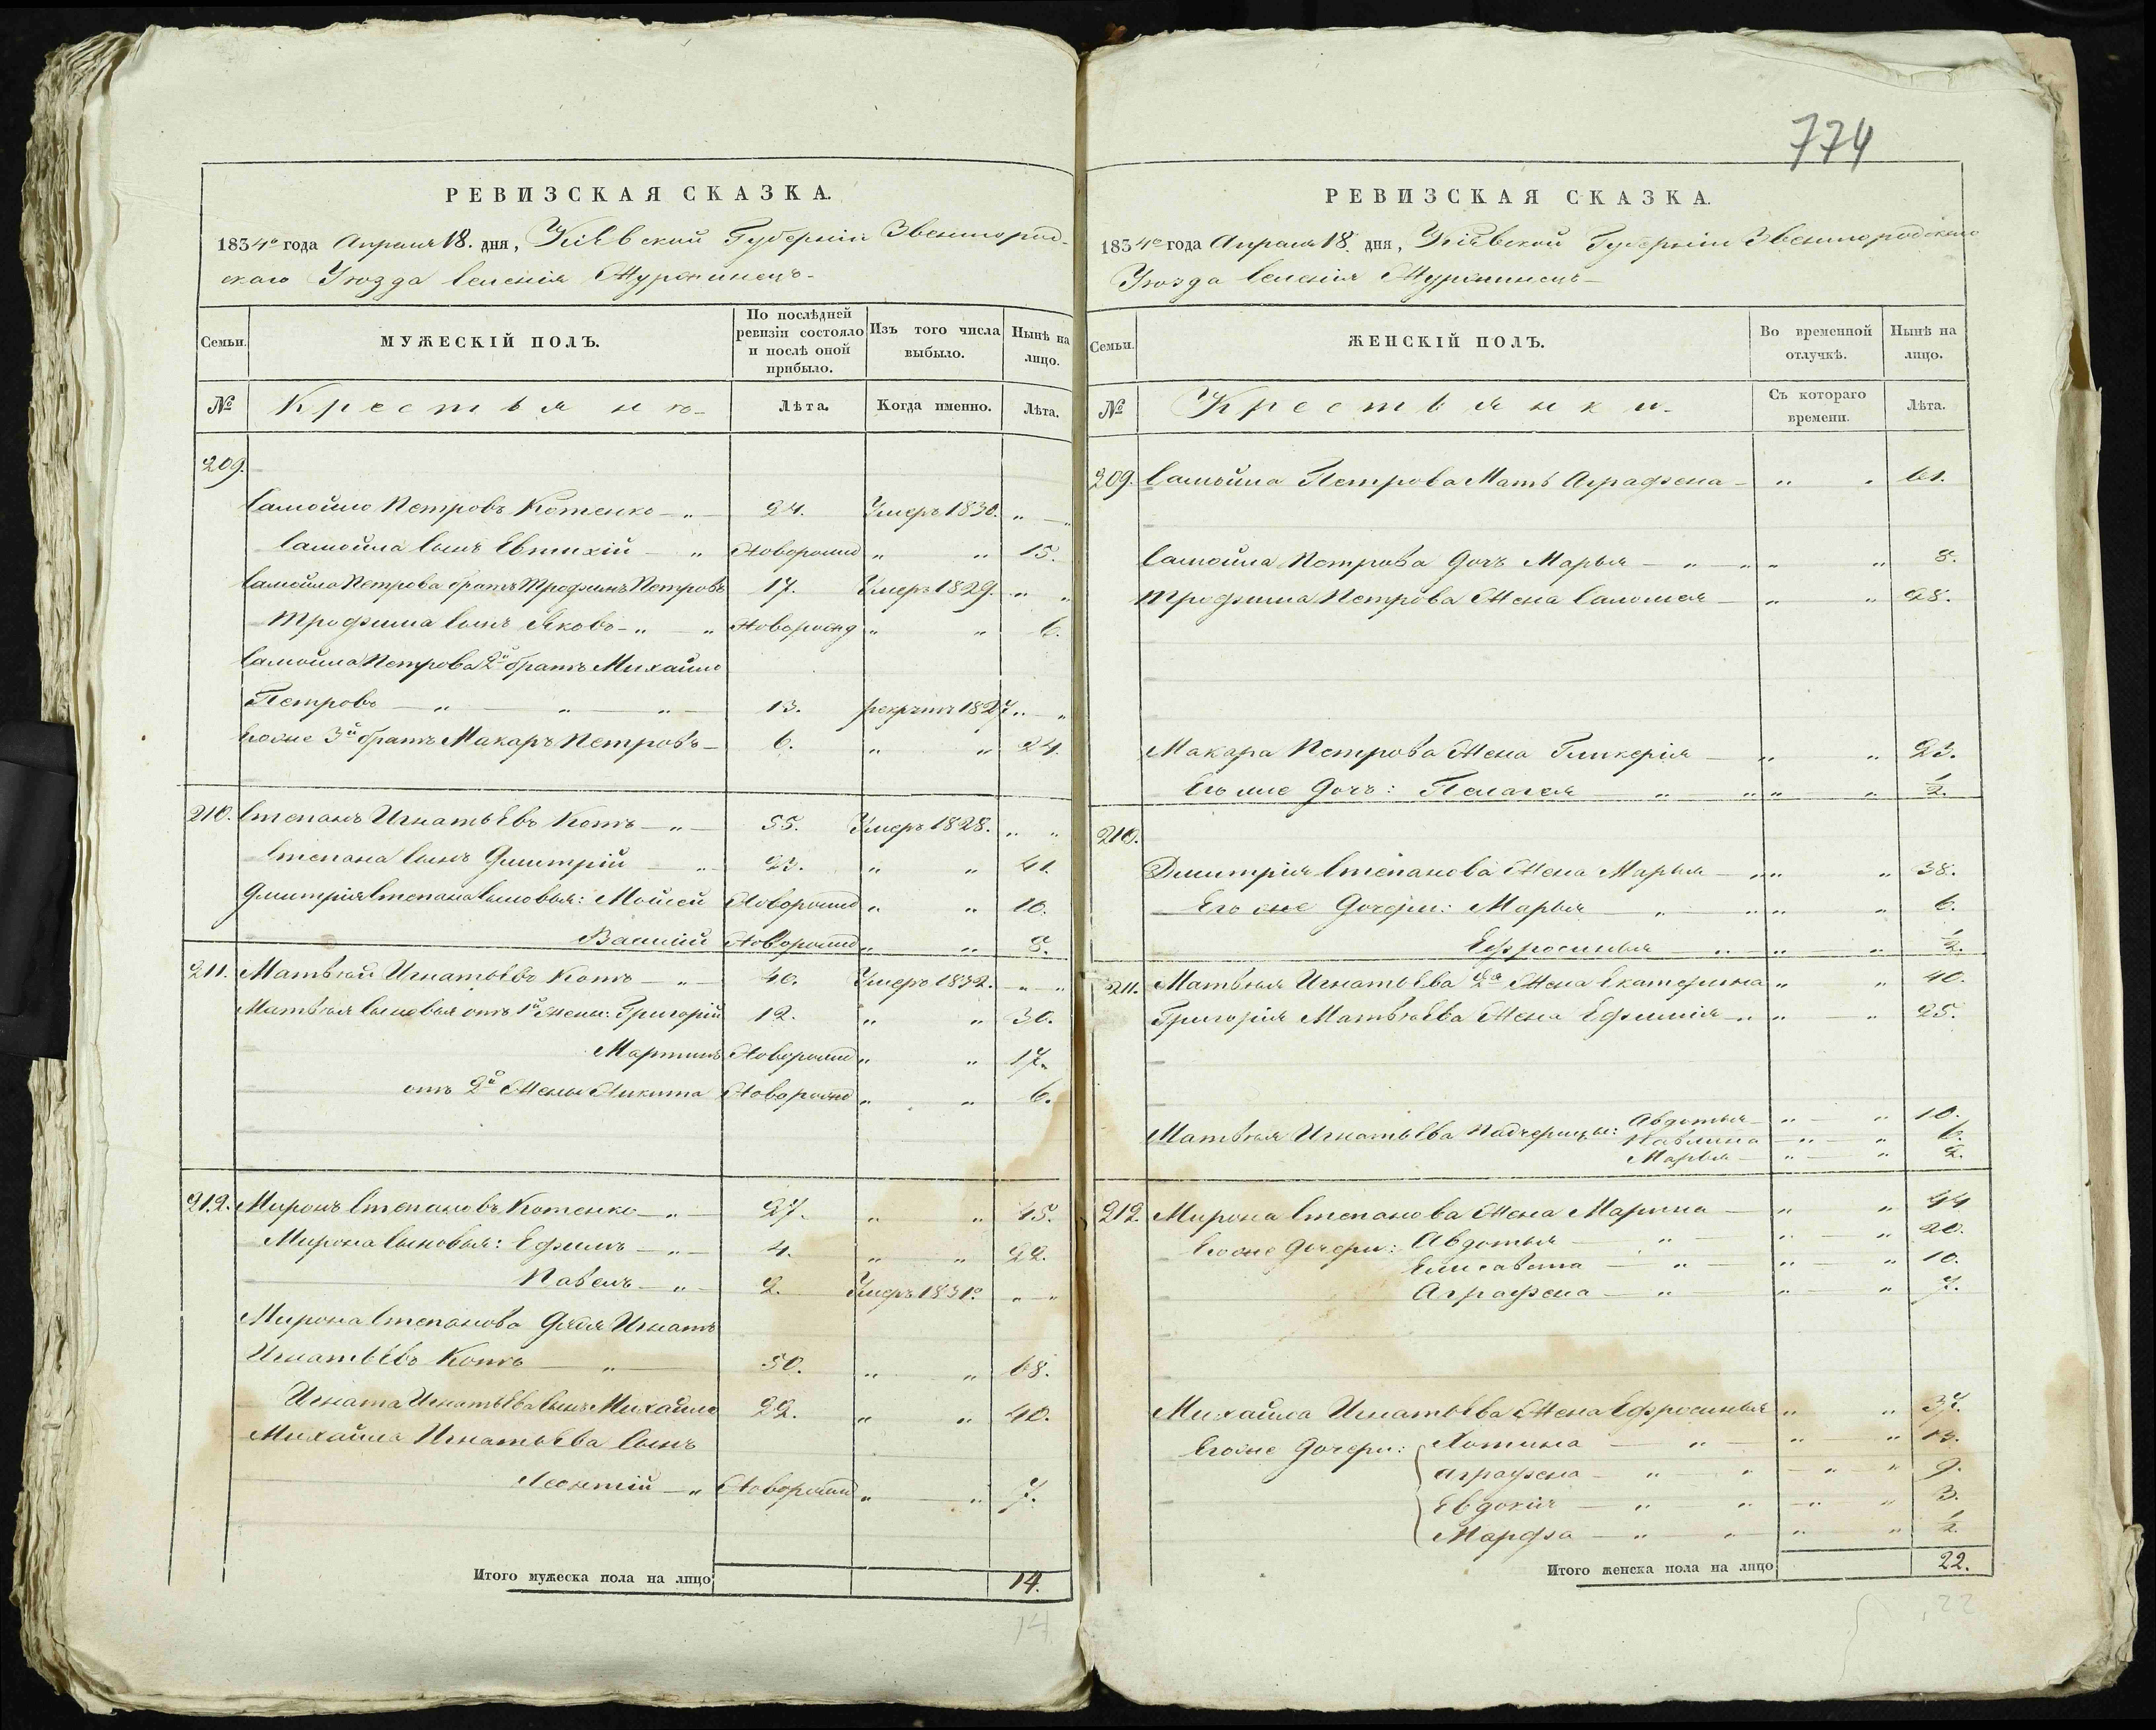 РЕВИЗСКАЯ СКАЗКА.
1834го года Апреля 18. дня, Кіевской Губерніи Звенигород-
скаго Уѣзда Селенія Журжинецъ
Семьи.
МУЖЕСКІЙ ПОЛЪ.
По послѣдней ревизіи состояло и послѣ оной прибыло.
Изъ того числа выбыло.
Нынѣ на лицо.
№
Крестьянѣ
Лѣта.
Когда именно.
Лѣта.
209.
Самойло Петровъ Котенко — „ — 24. Умеръ 1830. „ — „
Самойла Сынъ Евтихій — „ Новорожд „ „ 15.
Самойла Петрова братъ Трофимъ Петровъ 17. Умеръ 1829. „ „
Трофима Сынъ Яковъ — „ — „ Новорожд „ „ 6.
Самойла Петрова 2й братъ Михайло
Петровъ — „ „ „ — 13. рекрутъ 1827 „ — „
Егоже 3й братъ Макаръ Петровъ — 6. „ „ 24.
210. Степанъ Игнатьевъ Котъ — „ — 55. Умеръ 1828. „ „
Степана Сынъ Дмитрій — „ 23. „ „ 41.
Дмитрія Степанова Сыновья: Мойсей Новорожд „ „ 10.
Василій Новорожд „ „ 8.
211. Матвѣй Игнатьевъ Котъ — „ — 40. Умеръ 1832. „ — „
Матвѣя Сыновья отъ 1й Жены: Григорій 12. „ „ 30.
Мартинъ Новорожд „ „ 17.
отъ 2й Жены Никита Новорожд „ „ 6.
212. Миронъ Степановъ Котенко — „ — 27. „ „ 45.
Мирона Сыновья: Ефимъ — „ — 4. „ „ 22.
Павелъ — „ — 2. Умеръ 1831го „ — „
Мирона Степанова Дядя Игнатъ
Игнатьевъ Котъ — „ — 50. „ „ 68.
Игната Игнатьева Сынъ Михайло 22. „ „ 40.
Михайла Игнатьева Сынъ
Леонтій — „ Новорожд „ „ 7.
Итого мужеска пола на лицо 14.
14
774
РЕВИЗСКАЯ СКАЗКА.
1834го года Апреля 18. дня, Кіевской Губерніи Звенигородскаго
Уѣзда Селенія Журжинецъ —
Семьи.
ЖЕНСКІЙ ПОЛЪ.
Во временной отлучкѣ.
Нынѣ на лицо.
№
Крестьянки.
Съ котораго времени.
Лѣта.
209. Самойла Петрова Мать Аграфена — „ „ 61.
Самойла Петрова Дочь Марья — „ — „ „ „ 8.
Трофима Петрова Жена Саломея — „ „ 28.
Макара Петрова Жена Гликерія — „ „ 23.
Его же Дочь: Пелагея „ „ „ „ ½.
210.
Дмитрія Степанова Жена Марья — „ „ „ 38.
Его же Дочери: Марья — „ — „ „ „ 6.
Ефросинья — „ — „ „ ½.
211. Матвѣя Игнатьева 2я Жена Екатерина „ „ 40.
Григорія Матвѣева Жена Ефимія — „ „ — „ 25.
Матвѣя Игнатьева Падчерицы: Авдотья — „ — „ 10.
Павлина — „ — „ 6.
Марья — „ — „ 2.
212. Мирона Степанова Жена Марина — „ „ 44
Егоже Дочери: Авдотья — „ — „ — „ 20.
Елисавета — „ — „ — „ 10.
Аграфена — „ — „ — „ 7.
Михайла Игнатьева Жена Ефросинья „ „ 37.
Егоже Дочери: Хотина — „ — „ — „ 13.
Аграфена — „ „ — „ „ 9.
Евдокія — „ „ — „ „ 3.
Марфа — „ „ „ „ ½.
Итого женска пола на лицо 22.
22